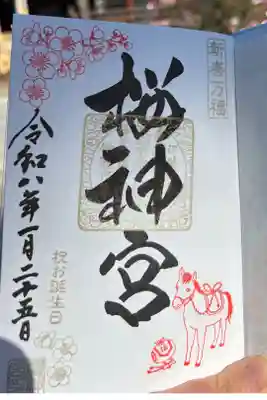 桜神宮
令和八年一月二十五日
祝お誕生日